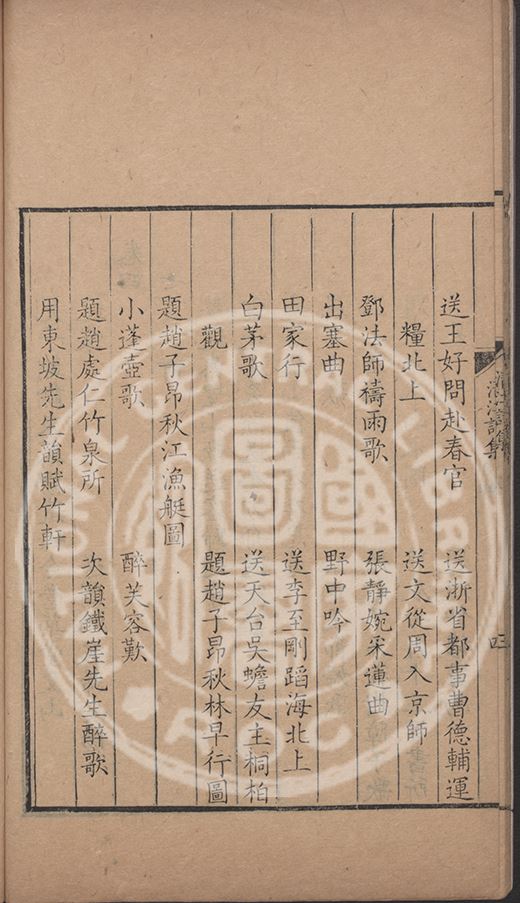 送王好問赴春官　送浙省都事曹德輔運
糧北上　送文從周入京師
鄧法師禱雨歌　張靜婉采蓮曲
出塞曲　野中吟
田家行　送李至剛蹈海北上
白茅歌　送天台吳蟾友主桐柏
觀　題趙子昂秋林早行圖
題趙子昂秋江漁艇圖
小蓬壺歌　醉芙容歎
題趙處仁竹泉所　次韻鐵崖先生醉歌
用東坡先生韻賦竹軒